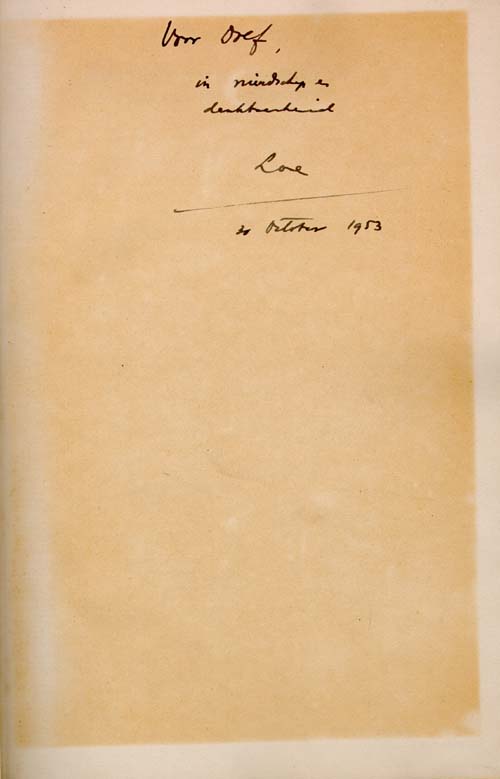 Voor Dolf,
in vriendschap en
dankbaarheid
Loe
30 October 1953